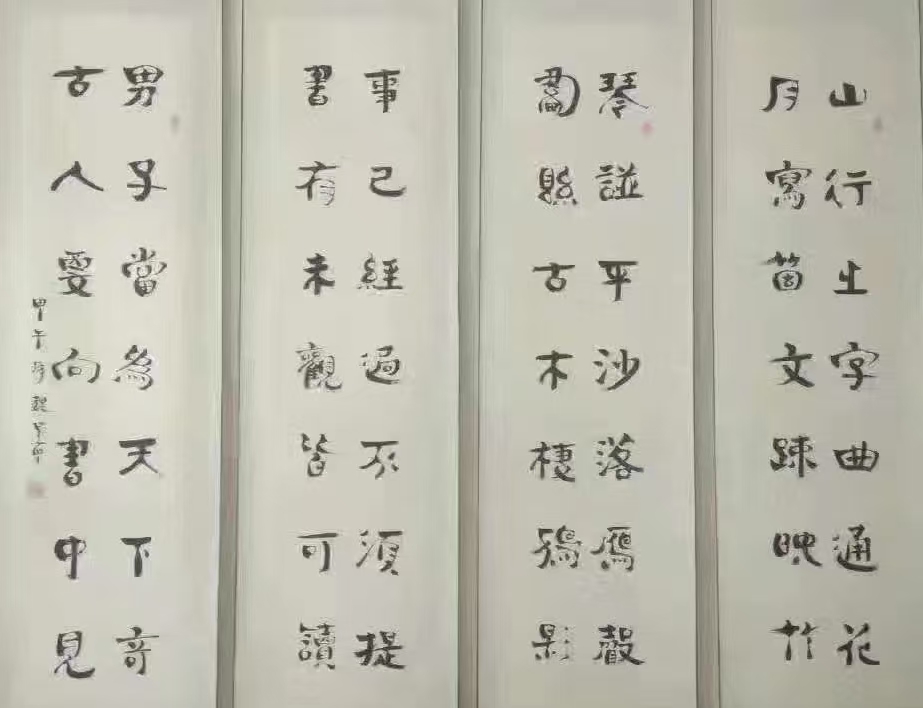 山行之字曲通花
月寫箇文疎映竹
琴諩平沙落鴈聲
畵縣古木棲鴉影
事已經過不須提
書有未觀皆可讀
男子當為天下奇
古人要向書中見
甲午